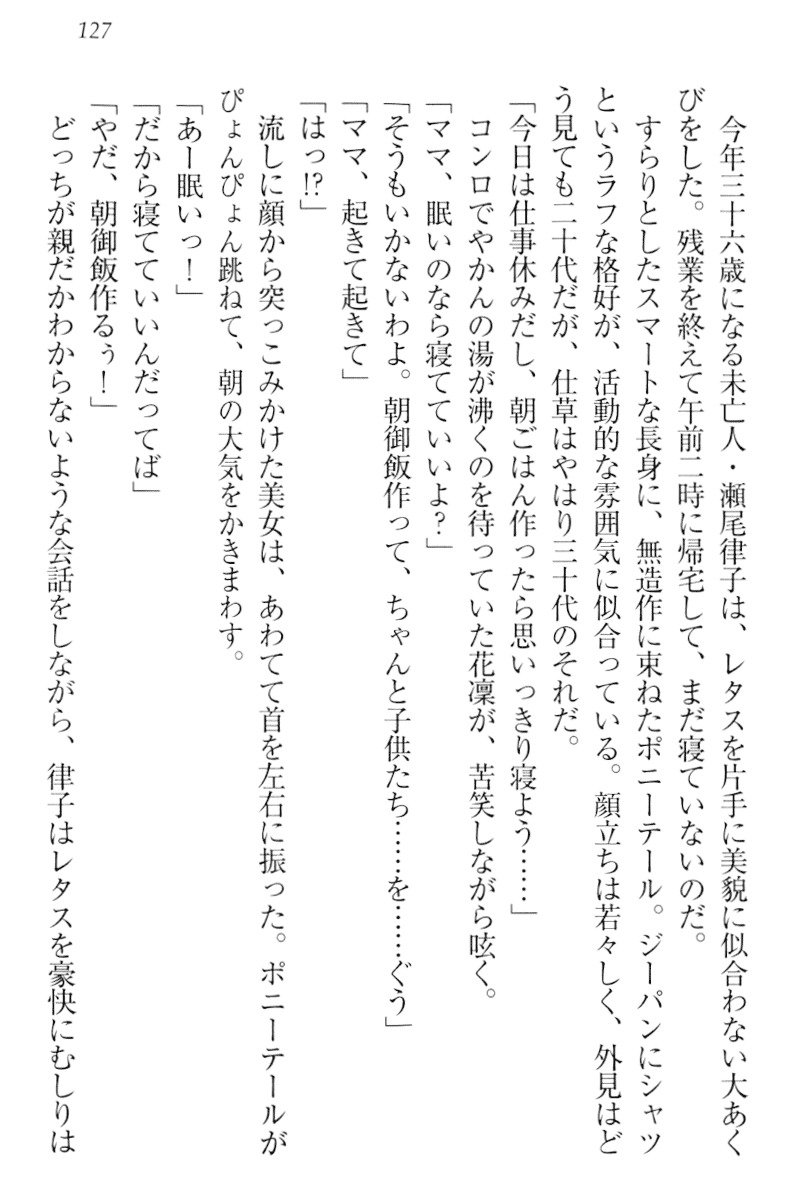 127
今年三十六歳になる未亡人・瀬尾律子は、レタスを片手に美貌に似合わない大あく
びをした。残業を終えて午前二時に帰宅して、まだ寝ていないのだ。
すらりとしたスマートな長身に、無造作に束ねたポニーテール。ジーパンにシャツ
というラフな格好が、活動的な雰囲気に似合っている。顔立ちは若々しく、外見はど
う見ても二十代だが、仕草はやはり三十代のそれだ。
「今日は仕事休みだし、朝ごはん作ったら思いっきり寝よう……」
コンロでやかんの湯が沸くのを待っていた花凜が、苦笑しながら呟く。
「ママ、眠いのなら寝てていいよ？」
「そうもいかないわよ。朝御飯作って、ちゃんと子供たち……を……ぐう」
「ママ、起きて起きて」
「はっ!?」
流しに顔から突っこみかけた美女は、あわてて首を左右に振った。ポニーテールが
ぴょんぴょん跳ねて、朝の大気をかきまわす。
「あー眠いっ！」
「だから寝てていいんだってば」
「やだ、朝御飯作るぅ！」
どっちが親だかわからないような会話をしながら、律子はレタスを豪快にむしりは